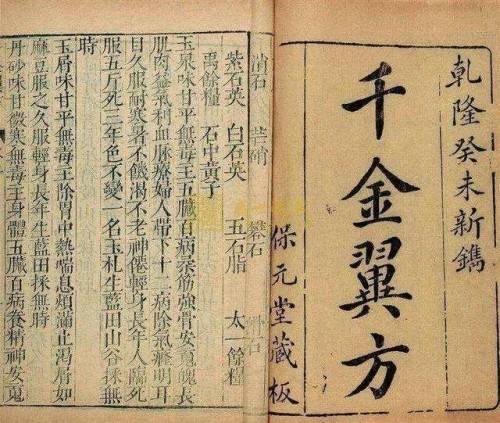 乾隆癸未新鐫
千金翼方
保元堂藏板
消石 芒硝 礬石 滑石
紫石英 白石英 五石脂 太一餘糧
禹餘糧 石中黃子
玉泉味甘平無毒主五臟百病柔筋強骨安䰟魄長
肌肉益氣利血脉療婦人帶下十二病除氣癃明耳
目久服耐寒暑不飢渴不老神僊輕身長年人臨死
服五斤死三年色不變一名玉札生藍田山谷採無
時
玉屑味甘平無毒主除胃中熱喘息煩滿止渴屑如
麻豆服之久服輕身長年生藍田採無時
丹砂味甘微寒無毒主身體五臟百病養精神安䰟